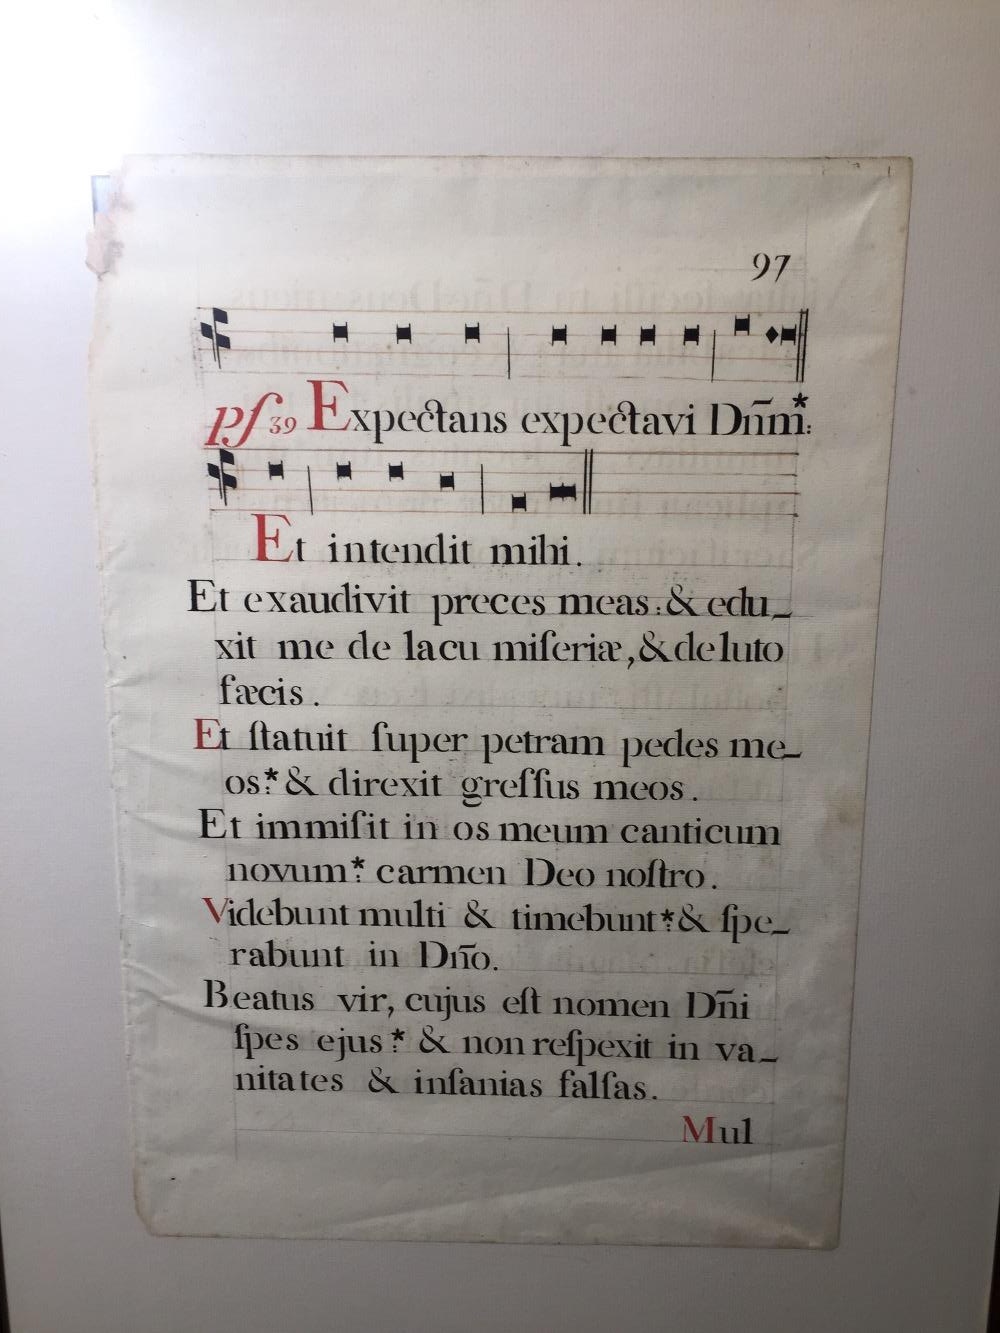 97
pſ 39 Expectans expectavi Dn̄m̄*:
Et intendit mihi.
Et exaudivit preces meas:& edu_
xit me de lacu miſeriæ,& de luto
fæcis.
Et ſtatuit ſuper petram pedes me_
os:*& direxit greſſus meos.
Et immiſit in os meum canticum
novum:* carmen Deo noſtro.
Videbunt multi & timebunt:*& ſpe_
rabunt in Dn̄o.
Beatus vir, cujus eſt nomen Dn̄i
ſpes ejus:* & non reſpexit in va_
nitates & inſanias falſas.
Mul